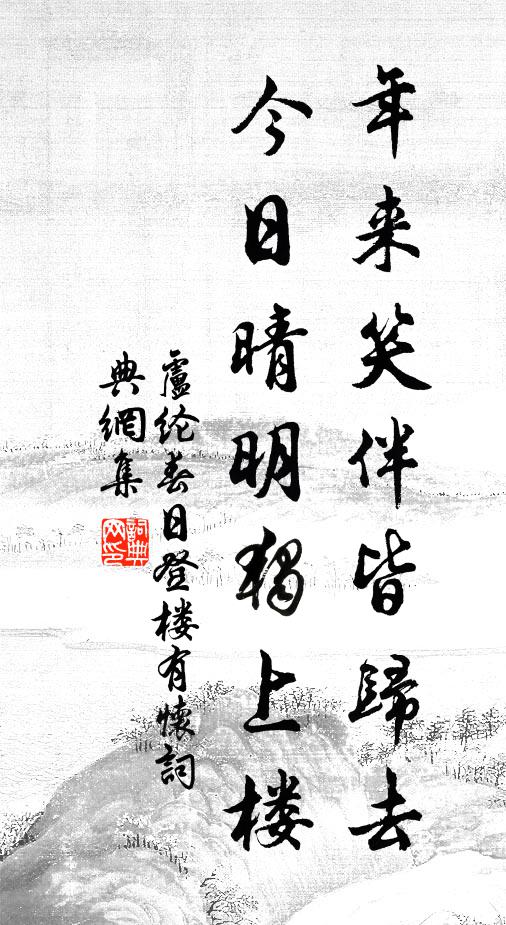 年来笑伴皆歸去
今日晴明獨上楼
盧纶春日登楼有懷詞
典網集
詞典
网印